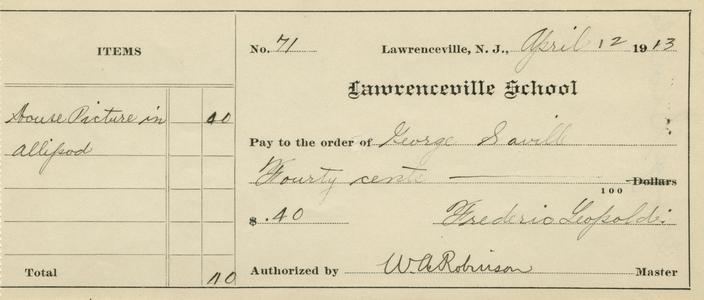 ITEMS
House Picture in 40
Allipod
Total 40
No. 71 Lawrenceville, N. J., April 12 1913
Lawrenceville School
Pay to the order of George Savill
Fourty cents Dollars
100
$ .40 Frederic Leopold
Authorized by W.A. Robinson Master